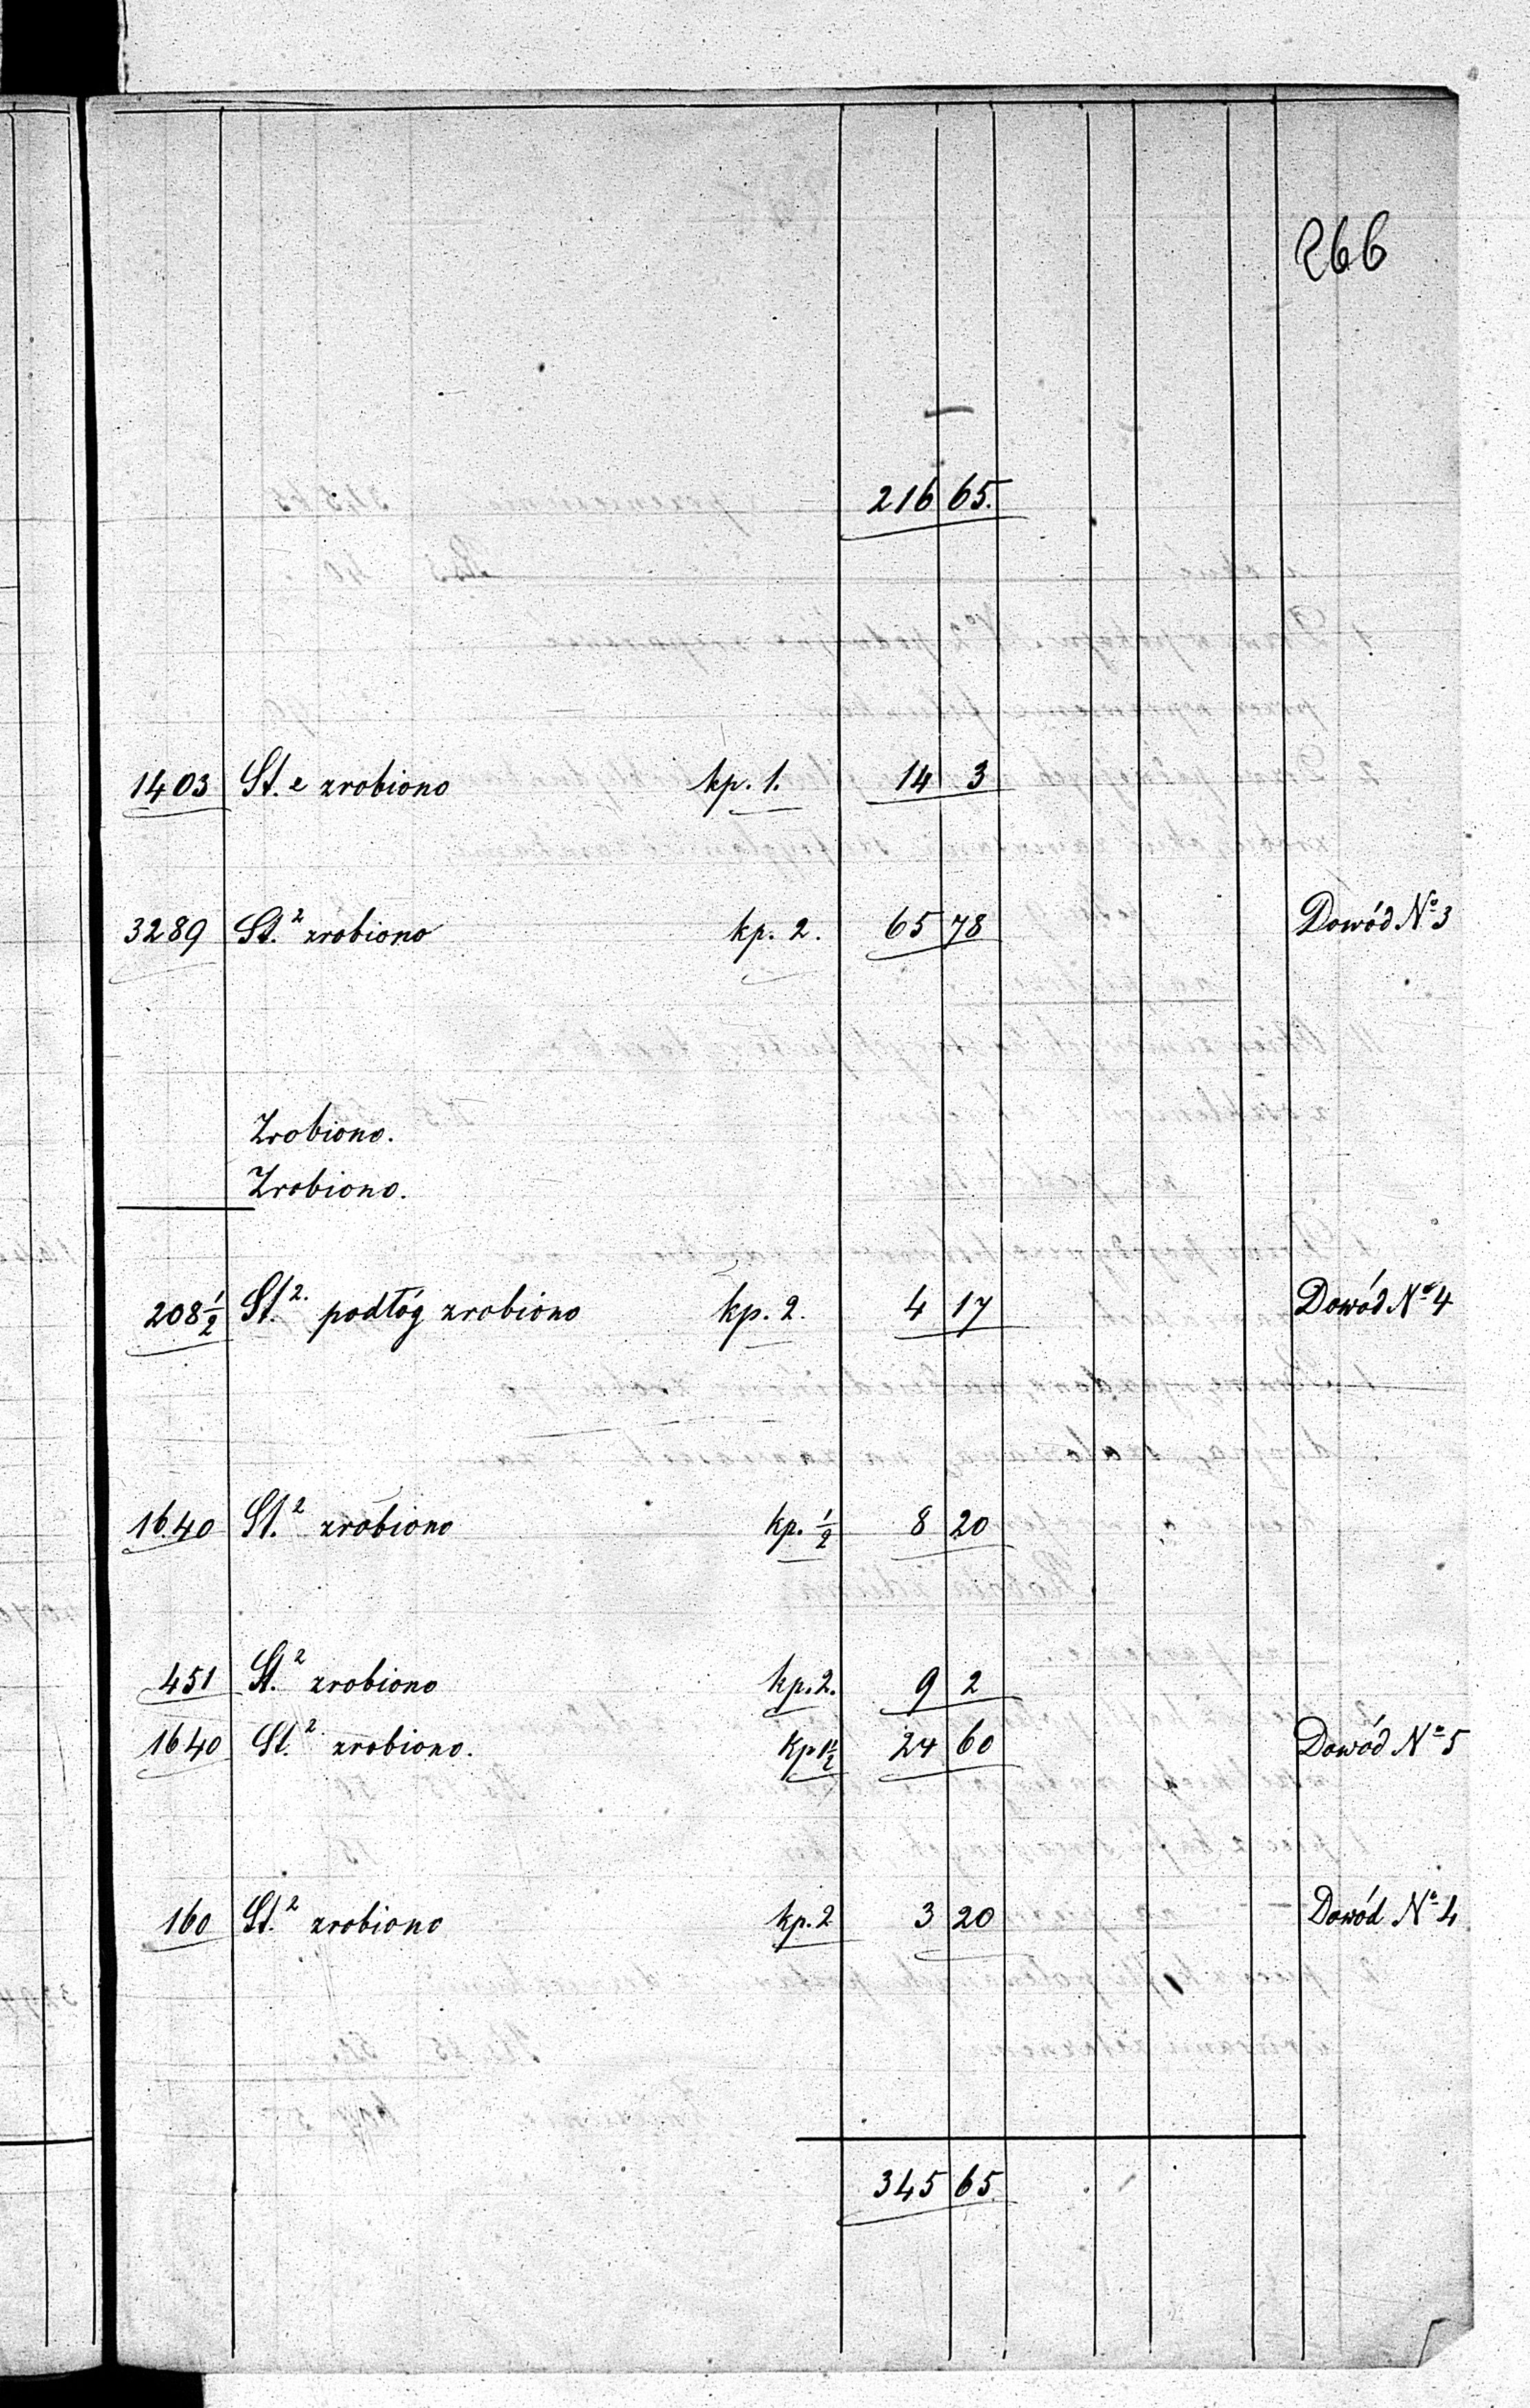 266
216 65.
1403 St. e zrobiono kp. 1. 14 3
3289 St.² zrobiono kp. 2. 65 78 Dowód Nº 3
Zrobiono.
Zrobiono.
208 1/2 St.² podłóg zrobiono kp. 2. 4 17 Dowód Nº 4
1640 St.² zrobiono kp. 1/2 8 20
451 St.² zrobiono kp. 2. 9 2
1640 St.² zrobiono. kp 1 1/2 24 60 Dowód Nº 5
160 St.² zrobiono kp. 2 3 20 Dowód Nº 4
345 65.